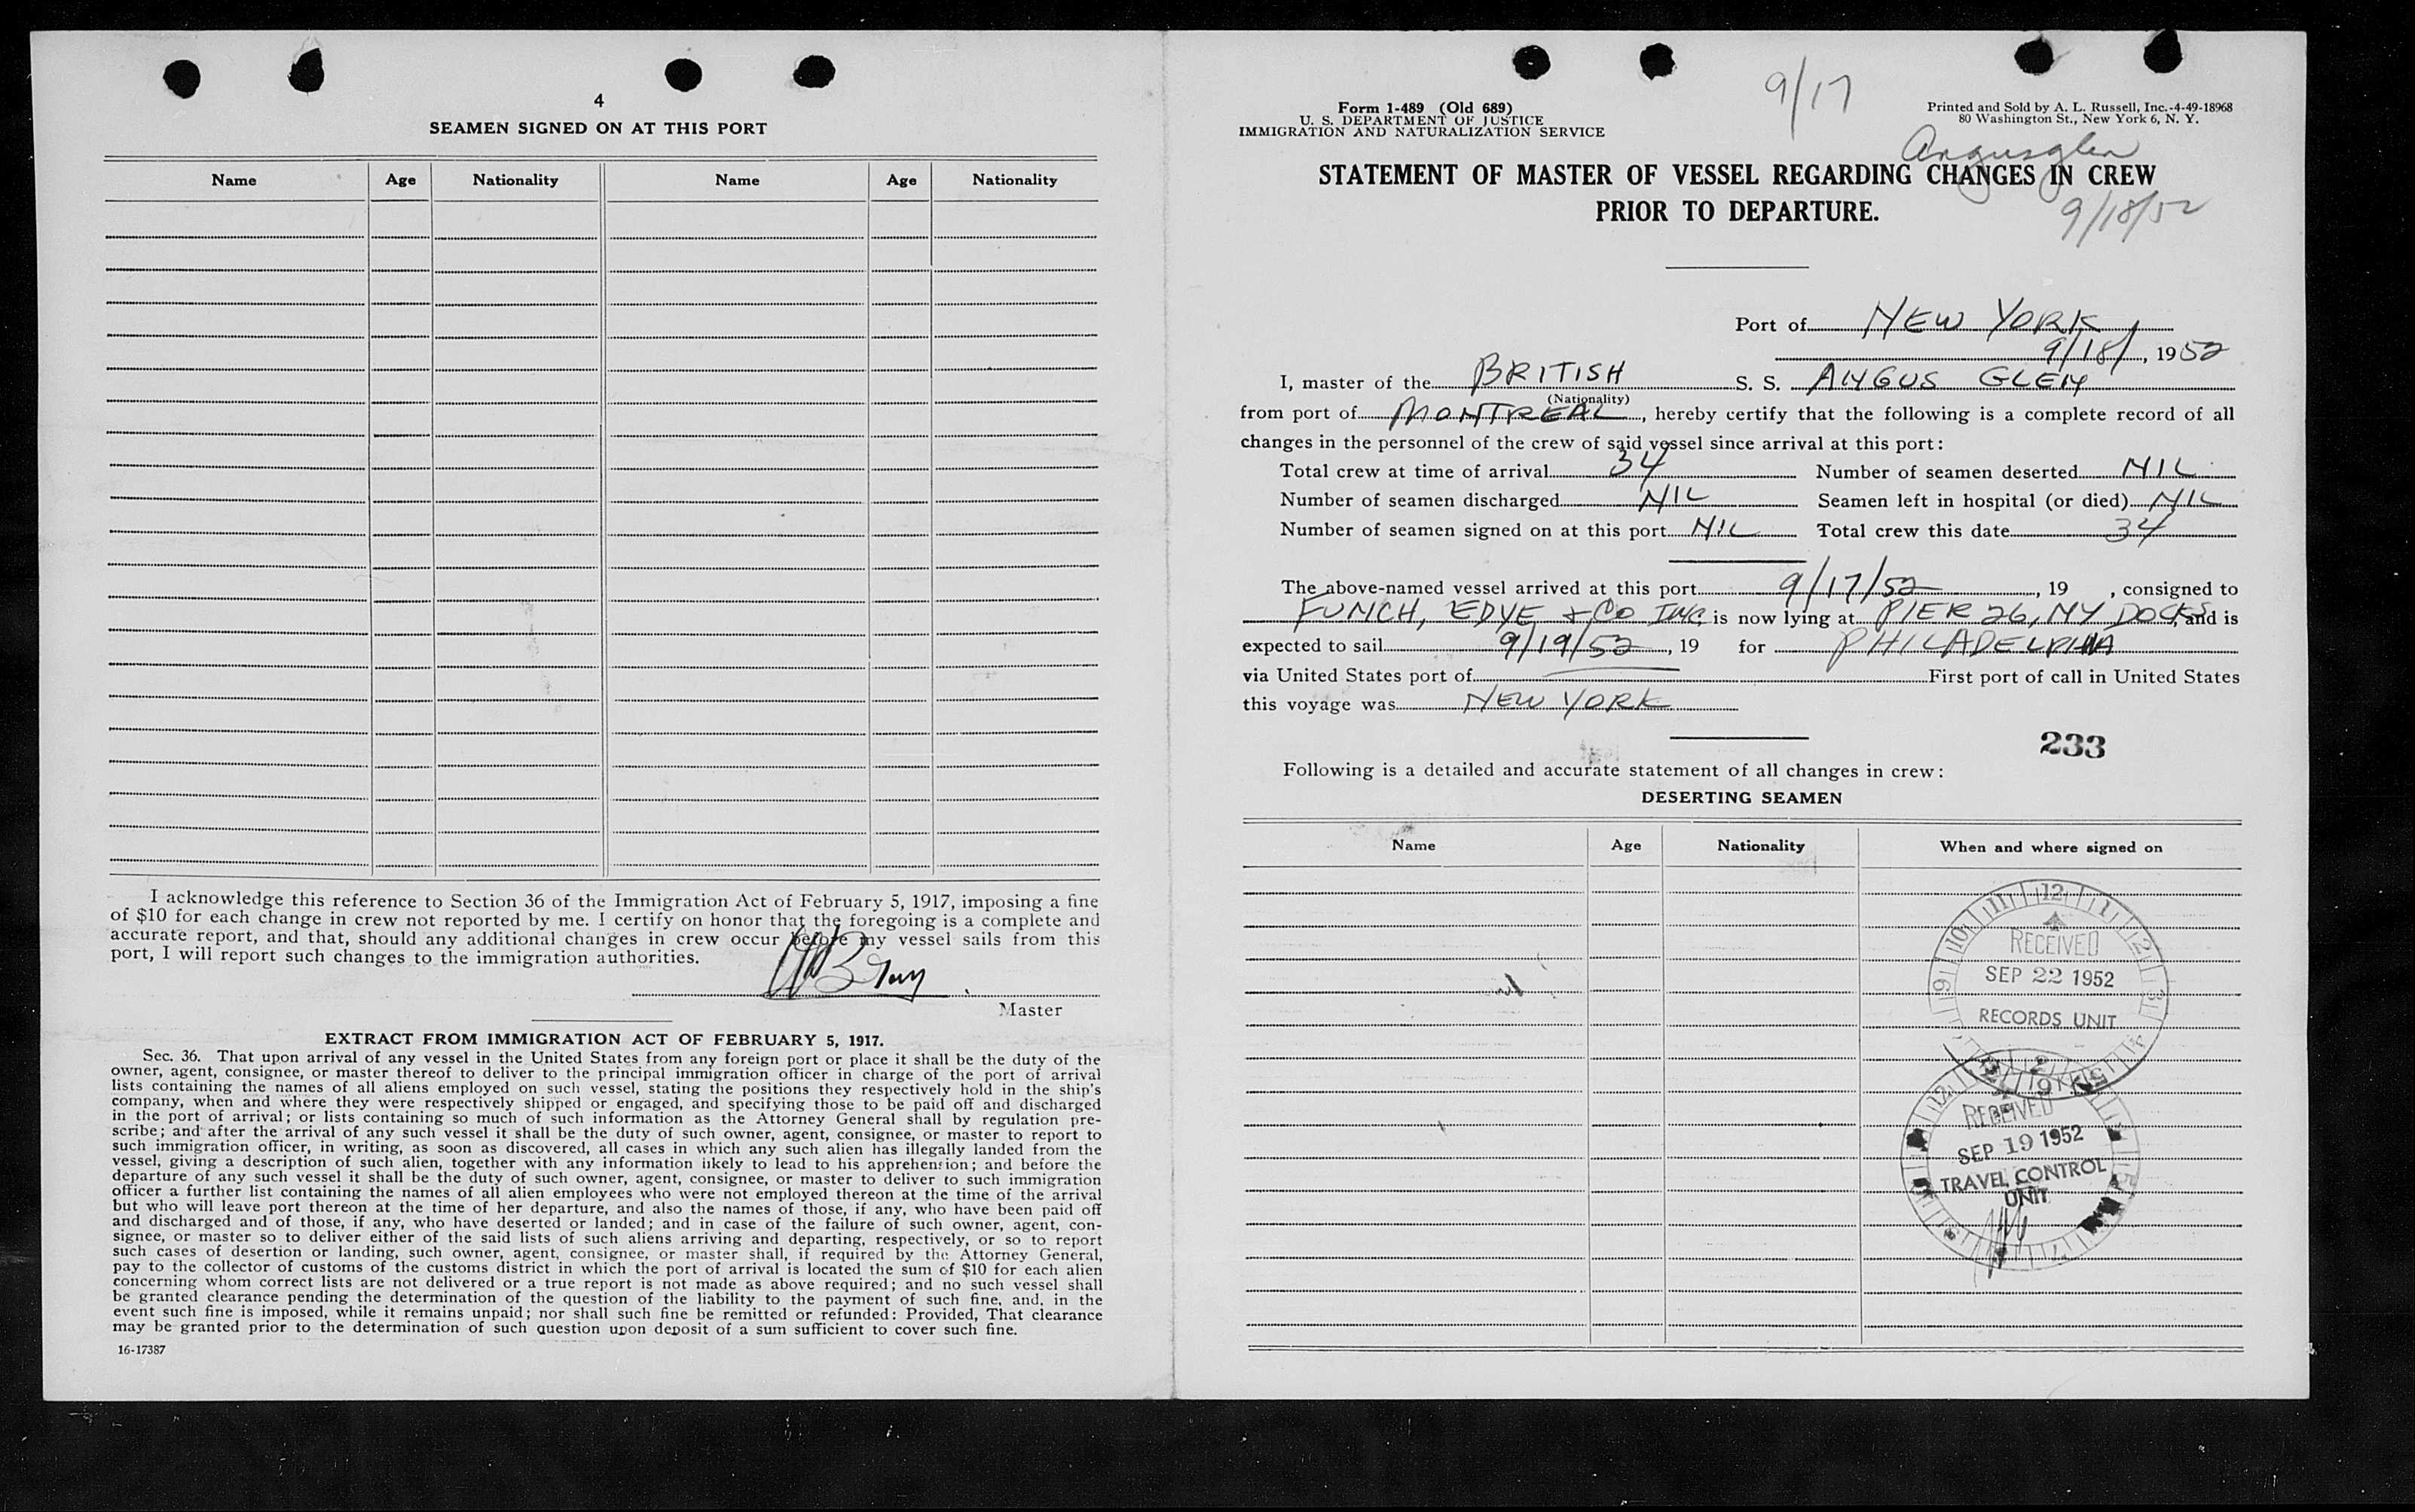 4
SEAMEN SIGNED ON AT THIS PORT
Name Age Nationality Name Age Nationality
I acknowledge this reference to Section 36 of the Immigration Act of February 5, 1917, imposing a fine
of $10 for each change in crew not reported by me. I certify on honor that the foregoing is a complete and
accurate report, and that, should any additional changes in crew occur before my vessel sails from this
port, I will report such changes to the immigration authorities.
Master
EXTRACT FROM IMMIGRATION ACT OF FEBRUARY 5, 1917.
Sec. 36. That upon arrival of any vessel in the United States from any foreign port or place it shall be the duty of the
owner, agent, consignee, or master thereof to deliver to the principal immigration officer in charge of the port of arrival
lists containing the names of all aliens employed on such vessel, stating the positions they respectively hold in the ship's
company, when and where they were respectively shipped or engaged, and specifying those to be paid off and discharged
in the port of arrival; or lists containing so much of such information as the Attorney General shall by regulation pre-
scribe; and after the arrival of any such vessel it shall be the duty of such owner, agent, consignee, or master to report to
such immigration officer, in writing, as soon as discovered, all cases in which any such alien has illegally landed from the
vessel, giving a description of such alien, together with any information likely to lead to his apprehension; and before the
departure of any such vessel it shall be the duty of such owner, agent, consignee, or master to deliver to such immigration
officer a further list containing the names of all alien employees who were not employed thereon at the time of the arrival
but who will leave port thereon at the time of her departure, and also the names of those, if any, who have been paid off
and discharged and of those, if any, who have deserted or landed; and in case of the failure of such owner, agent, con-
signee, or master so to deliver either of the said lists of such aliens arriving and departing, respectively, or so to report
such cases of desertion or landing, such owner, agent, consignee, or master shall, if required by the Attorney General,
pay to the collector of customs of the customs district in which the port of arrival is located the sum of $10 for each alien
concerning whom correct lists are not delivered or a true report is not made as above required; and no such vessel shall
be granted clearance pending the determination of the question of the liability to the payment of such fine, and, in the
event such fine is imposed, while it remains unpaid; nor shall such fine be remitted or refunded: Provided, That clearance
may be granted prior to the determination of such question upon deposit of a sum sufficient to cover such fine.
16-17387
9/17
Form 1-489 (Old 689)
U. S. DEPARTMENT OF JUSTICE
IMMIGRATION AND NATURALIZATION SERVICE
Printed and Sold by A. L. Russell, Inc.-4-49-18968
80 Washington St., New York 6, N. Y.
Angusglen
STATEMENT OF MASTER OF VESSEL REGARDING CHANGES IN CREW
PRIOR TO DEPARTURE.
9/18/52
Port of NEW YORK
9/18/, 1952
I, master of the BRITISH S. S. ANGUS GLEN
(Nationality)
from port of MONTREAL, hereby certify that the following is a complete record of all
changes in the personnel of the crew of said vessel since arrival at this port:
Total crew at time of arrival 34 Number of seamen deserted NIL
Number of seamen discharged NIL Seamen left in hospital (or died) NIL
Number of seamen signed on at this port NIL Total crew this date 34
The above-named vessel arrived at this port 9/17/52, 19 , consigned to
FUNCH, EDYE & CO INC. is now lying at PIER 26, NY DOCKS, and is
expected to sail 9/19/52, 19 for PHILADELPHIA
via United States port of First port of call in United States
this voyage was NEW YORK
233
Following is a detailed and accurate statement of all changes in crew:
DESERTING SEAMEN
Name Age Nationality When and where signed on
RECEIVED
SEP 22 1952
RECORDS UNIT
RECEIVED
SEP 19 1952
TRAVEL CONTROL
UNIT